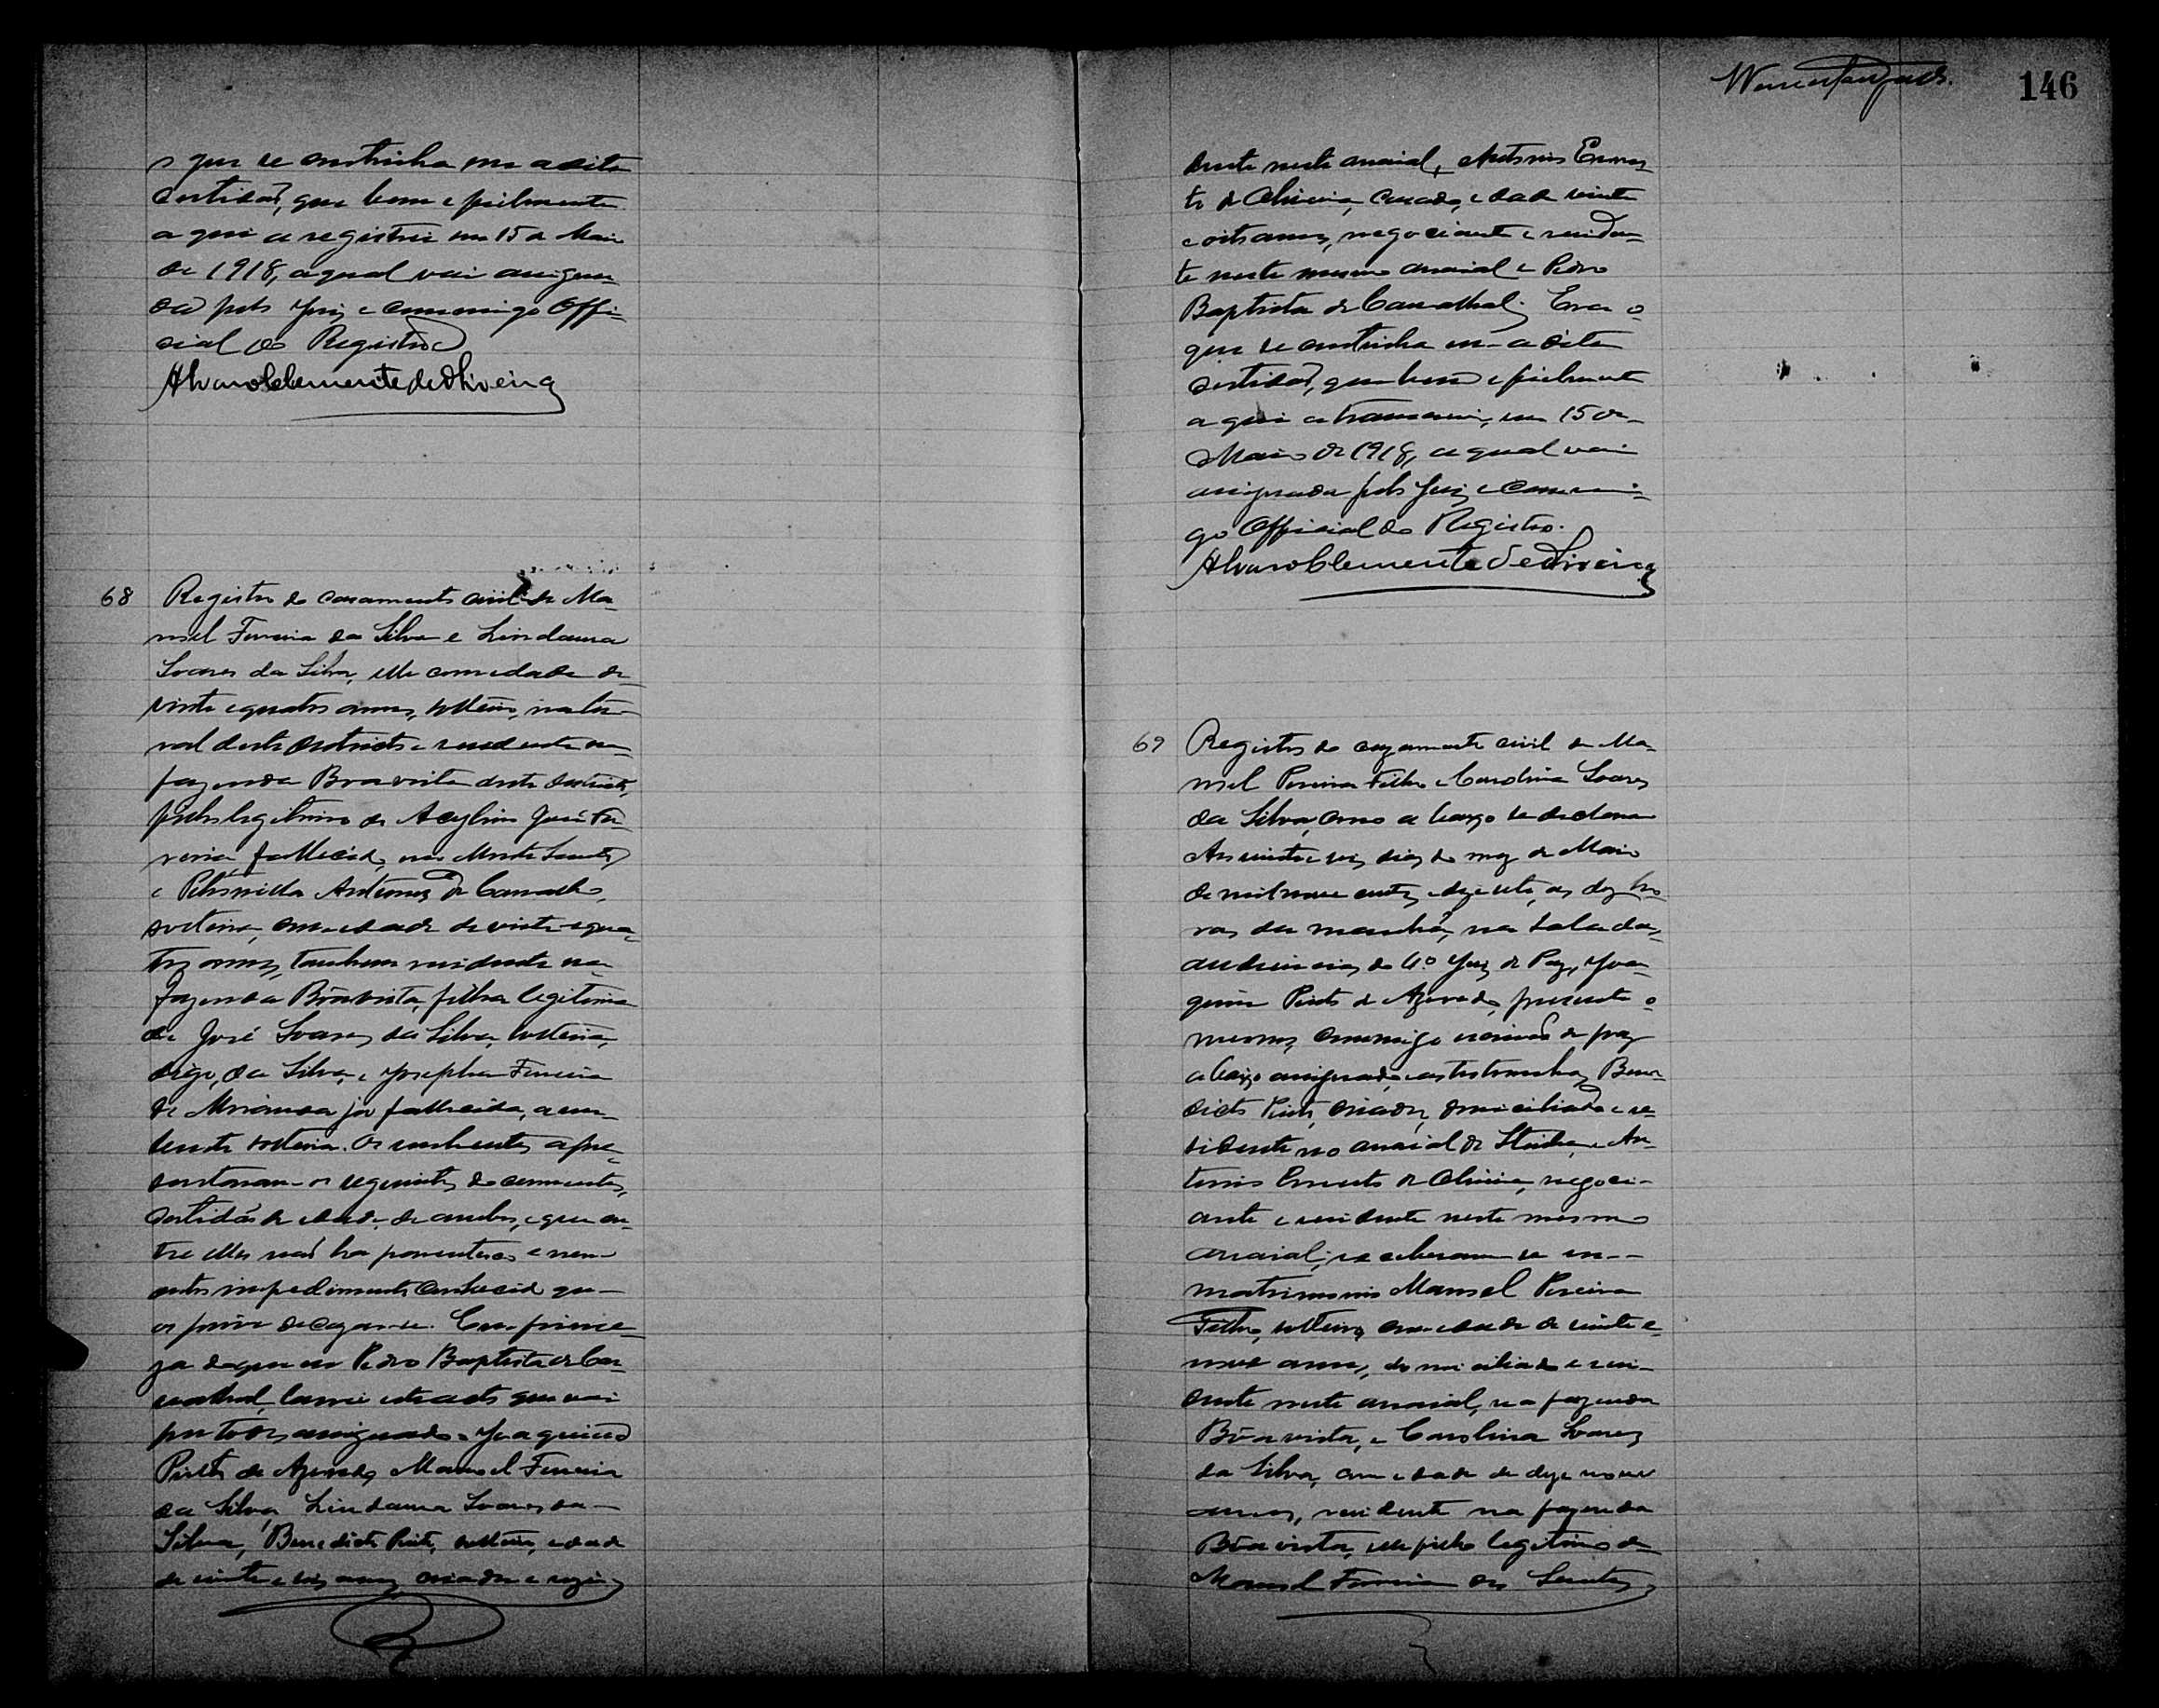 o que se continha em a dita
certidaõ, que bem e fielmente
aqui a registrei em 15 de Maio
de 1918, a qual vai assigna-
da pelo Juiz e commigo Offi-
cial do Registro
Alvaro Clemente de Oliveira
68 Registro do casamento civil de Ma-
noel Ferreira da Silva e Lindaura
Soares da Silva, elle com edade de
vinte e quatro annos, solteiro, natu-
ral deste districto e residente na
fazenda Boavista deste districto,
filho legitimo de Acylino José Fer-
reira, fallecido, no Monte Santo
e Petronilla Antunes de Carvalho,
solteira, com edade de vinte e qua-
tro annos, tambem residente na
fazenda Bôavista, filha legitima
de José Soares da Silva, solteira,
digo, da Silva, e Josepha Ferreira
de Miranda já fallecida,
solteira. Os nubentes apre-
sentaram os seguintes documentos,
certidão de edade, de ambos, e que en-
tre elles naõ ha parentesco e nem
outro impedimento conhecido que
os prive de cazar-se. Em firme-
za do que eu Pedro Baptista de Car-
vathal, lavrei este acto que vai
por todos assignado. Joaquim
Pinto de Azevedo, Manoel Ferreira
da Silva, Lindaura Soares da
Silva, Benedicto Pinto, solteiro, edade
de vinte e seis annos, criador e rezi-
146
dente neste arraial, Antonio Ernes-
to de Oliveira, casado, edade vinte
e oito annos, negociante e residen-
te neste mesmo arraial e Pedro
Baptista de Carvathal. Era o
que se continha em a dita
certidaõ, que bem e fielmente
aqui a transcrevi, em 15 de
Maio de 1918, a qual vai
assignada pelo Juiz e commi-
go Official do Registro.
Alvaro Clemente de Oliveira
69 Registro do cazamento civil de Ma-
noel Pereira Filho e Carolina Soares
da Silva, como a baixo se declara
Aos vinte e seis dias do mez de Maio
de mil nove centos e dezesete, as dez ho-
ras da manhã, na sala das
audiencias do 1º Juiz de Paz, Joa-
quim Pinto de Azevedo, presente o
mesmo, commigo escrivaõ de paz
abaixo assignado e as testemunhas Bene-
dicto Pinto, criador, domiciliado e re-
sidente no arraial de e An-
tonio Ernesto de Oliveira, negoci-
ante e residente neste mesmo
arraial; receberam-se em
matrimonio Manoel Pereira
Filho, solteiro, com edade de vinte e
nove annos, domiciliado e resi-
dente neste arraial, na fazenda
Bôa vista, e Carolina Soares
da Silva, com edade de dezenove
annos, residente na fazenda
Bôa vista, elle filho legitimo de
Manoel Ferreira dos Santos,